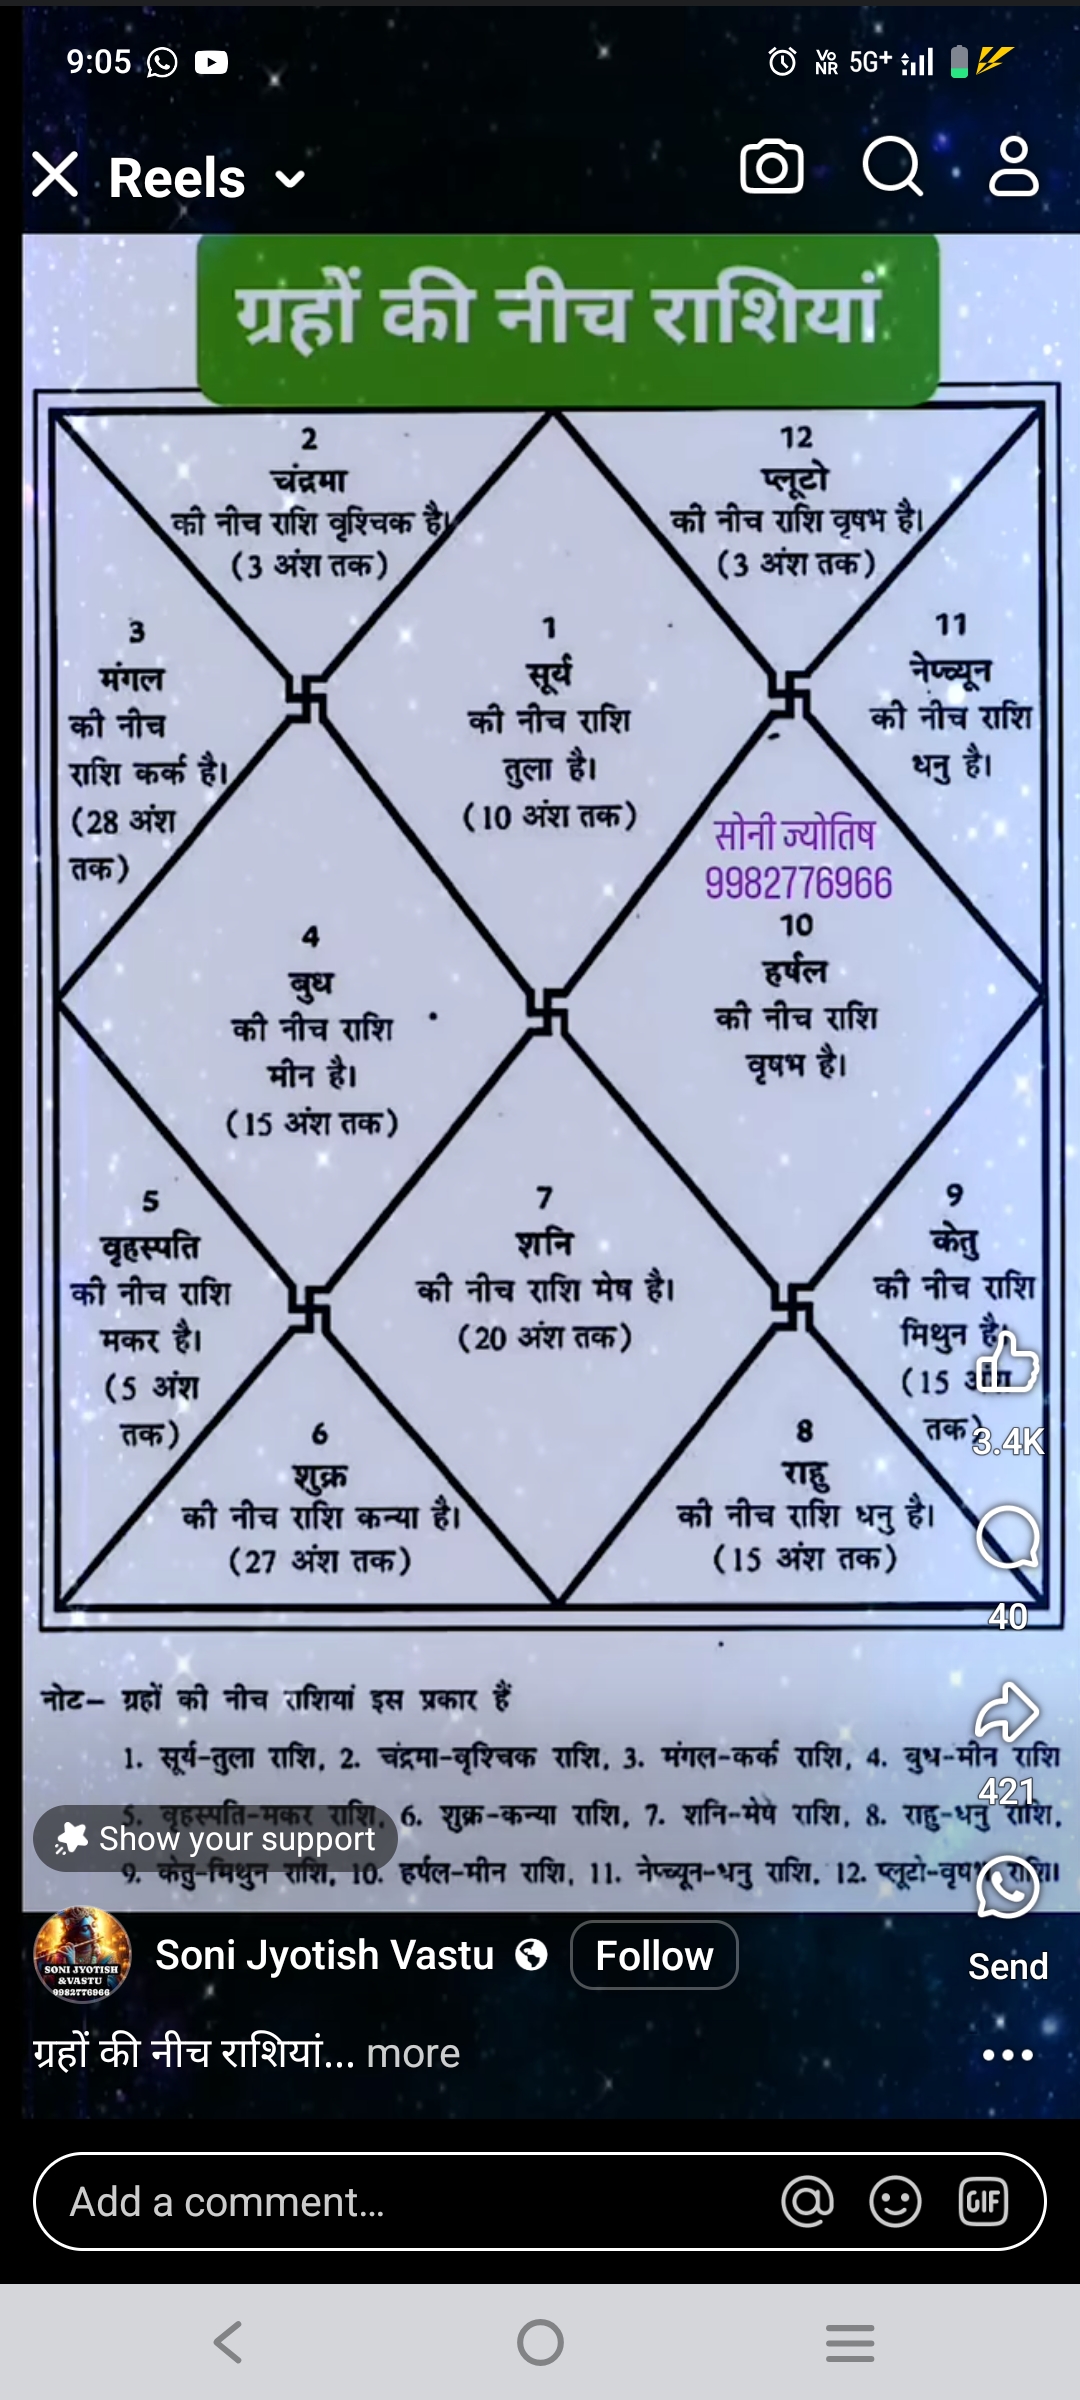 9:05
Vo NR 5G+
Reels
ग्रहों की नीच राशियां
2
चंद्रमा
की नीच राशि वृश्चिक है।
(3 अंश तक)
12
प्लूटो
की नीच राशि वृषभ है।
(3 अंश तक)
3
मंगल
की नीच
राशि कर्क है।
(28 अंश
तक)
1
सूर्य
की नीच राशि
तुला है।
(10 अंश तक)
11
नेप्च्यून
की नीच राशि
धनु है।
सोनी ज्योतिष
9982776966
4
बुध
की नीच राशि
मीन है।
(15 अंश तक)
10
हर्षल
की नीच राशि
वृषभ है।
5
वृहस्पति
की नीच राशि
मकर है।
(5 अंश
तक)
7
शनि
की नीच राशि मेष है।
(20 अंश तक)
9
केतु
की नीच राशि
मिथुन है।
(15 अंश
तक)
6
शुक्र
की नीच राशि कन्या है।
(27 अंश तक)
8
राहु
की नीच राशि धनु है।
(15 अंश तक)
3.4K
40
421
नोट– ग्रहों की नीच राशियां इस प्रकार हैं
1. सूर्य-तुला राशि, 2. चंद्रमा-वृश्चिक राशि, 3. मंगल-कर्क राशि, 4. बुध-मीन राशि
5. वृहस्पति-मकर राशि, 6. शुक्र-कन्या राशि, 7. शनि-मेष राशि, 8. राहु-धनु राशि,
9. केतु-मिथुन राशि, 10. हर्षल-मीन राशि, 11. नेप्च्यून-धनु राशि, 12. प्लूटो-वृषभ राशि।
Show your support
SONI JYOTISH
&VASTU
9982776966
Soni Jyotish Vastu
Follow
Send
ग्रहों की नीच राशियां... more
Add a comment...
GIF